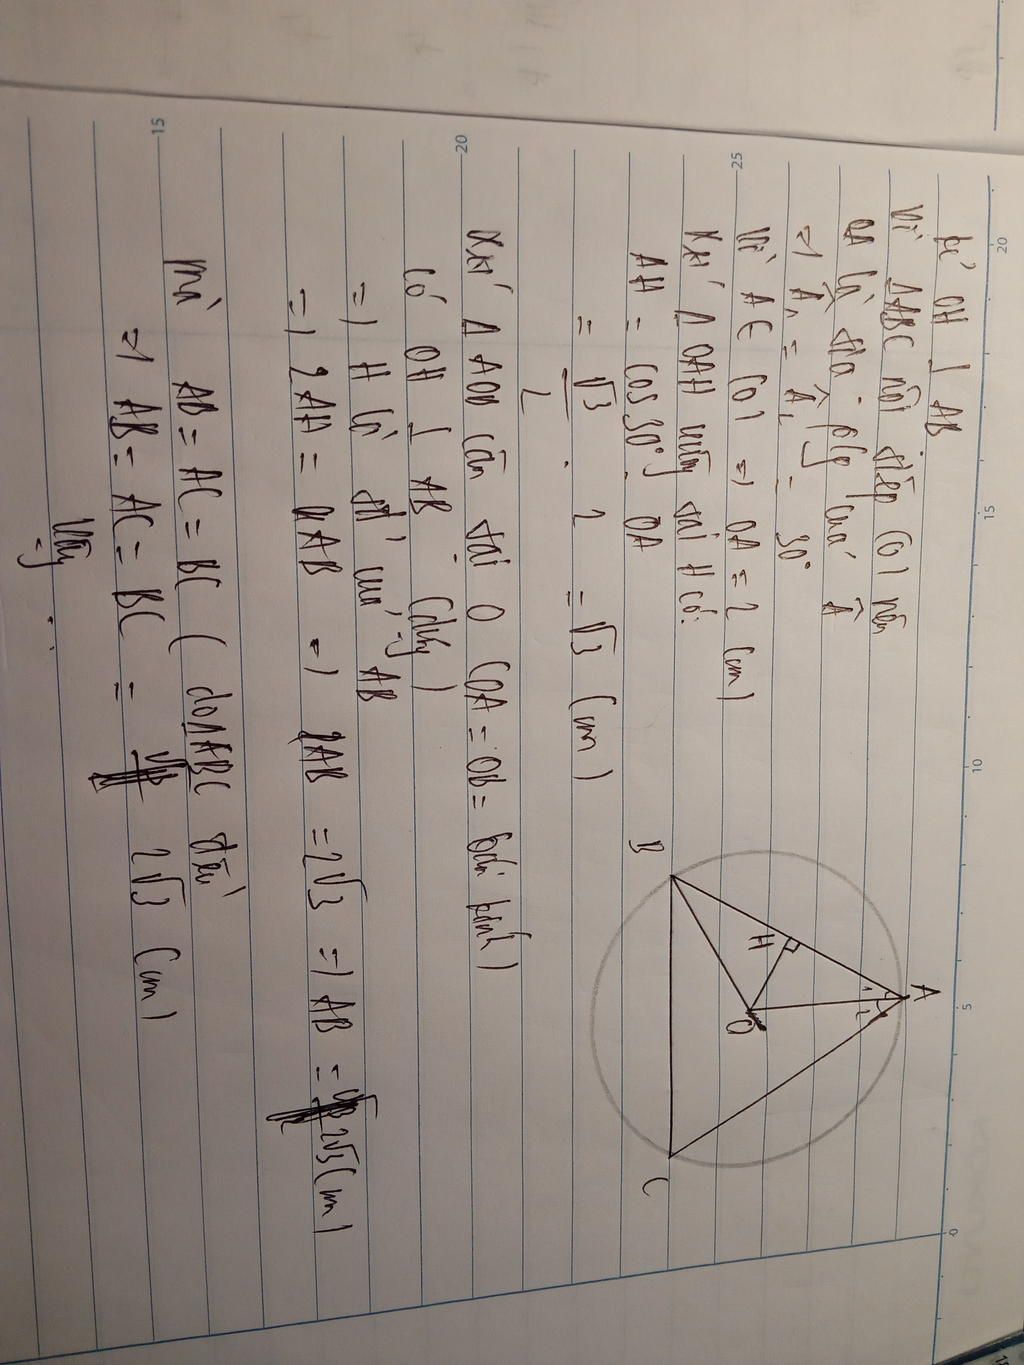 kẻ OH ⊥ AB
Vì ΔABC nội tiếp (O) nên
OA là tia p/g của Â
=> Â₁ = Â₂ = 30°
Vì A ∈ (O) => OA = 2 (cm)
Xét Δ OAH vuông tại H có:
AH = cos 30° . OA
= √3/2 . 2 = √3 (cm)
Xét Δ AOB cân tại O (OA = OB = bán kính)
Có OH ⊥ AB (cdựng)
=> H là tđ của AB
=> 2AH = AB => AB = 2√3 => AB = 2√3 (cm)
mà AB = AC = BC (do ΔABC đều
=> AB = AC = BC = 2√3 (cm)
Vậy
A
1 2
B
H
O
C
20
15
10
5
0
25
20
15